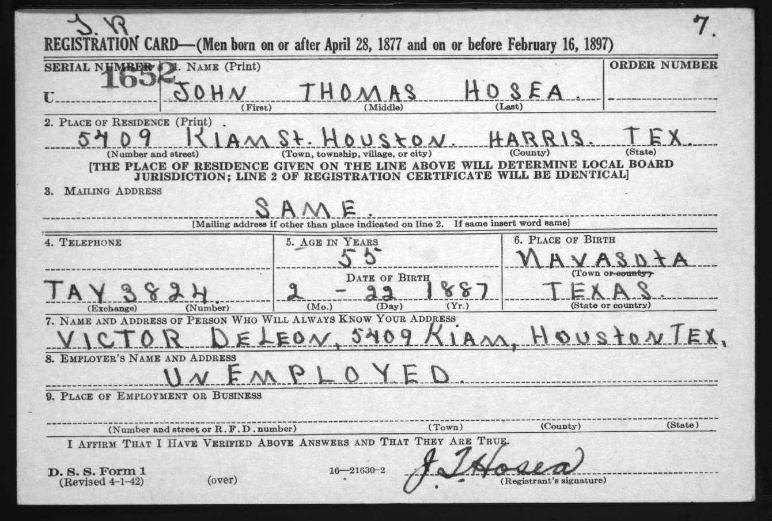 J. R 7.
REGISTRATION CARD—(Men born on or after April 28, 1877 and on or before February 16, 1897)
SERIAL NUMBER 1. NAME (Print) ORDER NUMBER
1652
U JOHN THOMAS HOSEA.
(First) (Middle) (Last)
2. PLACE OF RESIDENCE (Print)
5409 KIAM St. HOUSTON. HARRIS. TEX.
(Number and street) (Town, township, village, or city) (County) (State)
[THE PLACE OF RESIDENCE GIVEN ON THE LINE ABOVE WILL DETERMINE LOCAL BOARD
JURISDICTION; LINE 2 OF REGISTRATION CERTIFICATE WILL BE IDENTICAL]
3. MAILING ADDRESS
SAME.
[Mailing address if other than place indicated on line 2. If same insert word same]
4. TELEPHONE 5. AGE IN YEARS 6. PLACE OF BIRTH
55 NAVASOTA
(Town or county)
DATE OF BIRTH
TAY 3824. 2 - 22 1887 TEXAS.
(Exchange) (Number) (Mo.) (Day) (Yr.) (State or country)
7. NAME AND ADDRESS OF PERSON WHO WILL ALWAYS KNOW YOUR ADDRESS
VICTOR DELEON, 5409 KIAM, HOUSTON TEX,
8. EMPLOYER'S NAME AND ADDRESS
UNEMPLOYED.
9. PLACE OF EMPLOYMENT OR BUSINESS
(Number and street or R. F. D. number) (Town) (County) (State)
I AFFIRM THAT I HAVE VERIFIED ABOVE ANSWERS AND THAT THEY ARE TRUE.
D. S. S. Form 1
(Revised 4-1-42) (over) 16—21630-2 J. T. Hosea
(Registrant's signature)